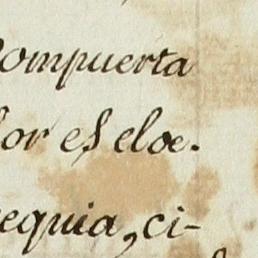 Compuerta
lor es el oe-
equia, ci-